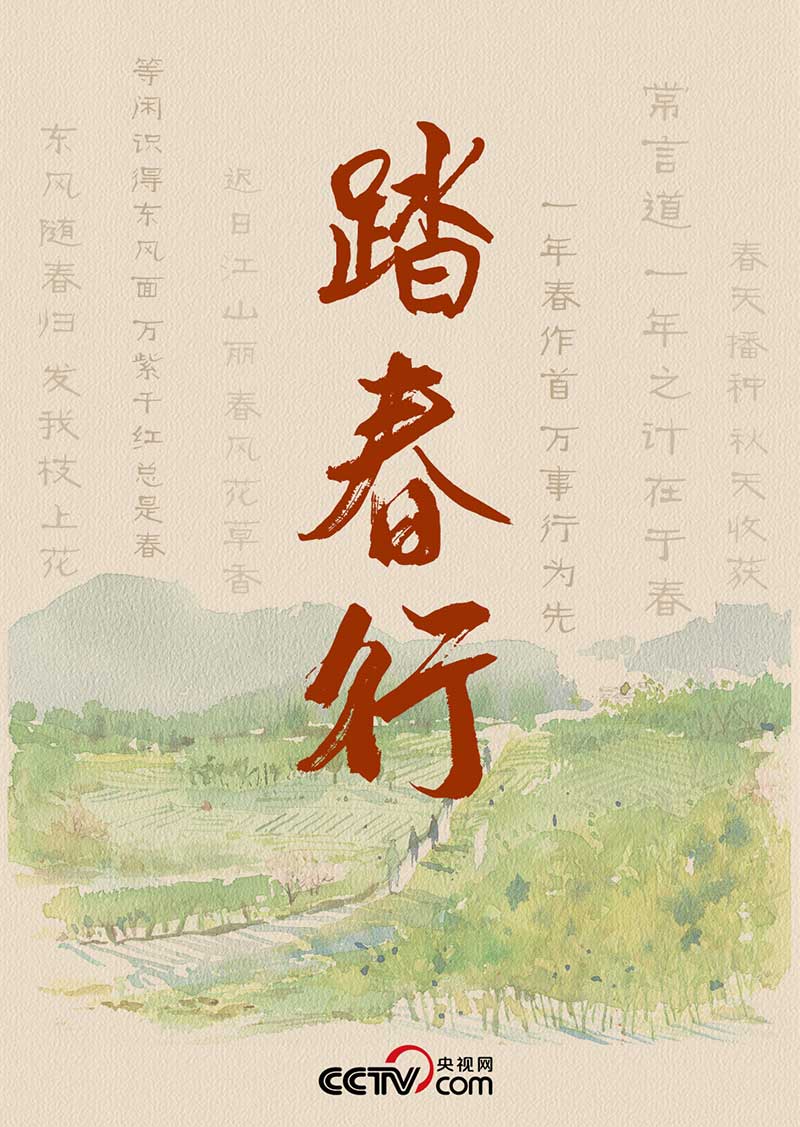 踏春行
春天播种 秋天收获
常言道 一年之计在于春
一年春作首 万事行为先
迟日江山丽 春风花草香
等闲识得东风面 万紫千红总是春
东风随春归 发我枝上花
CCTV 央视网
com